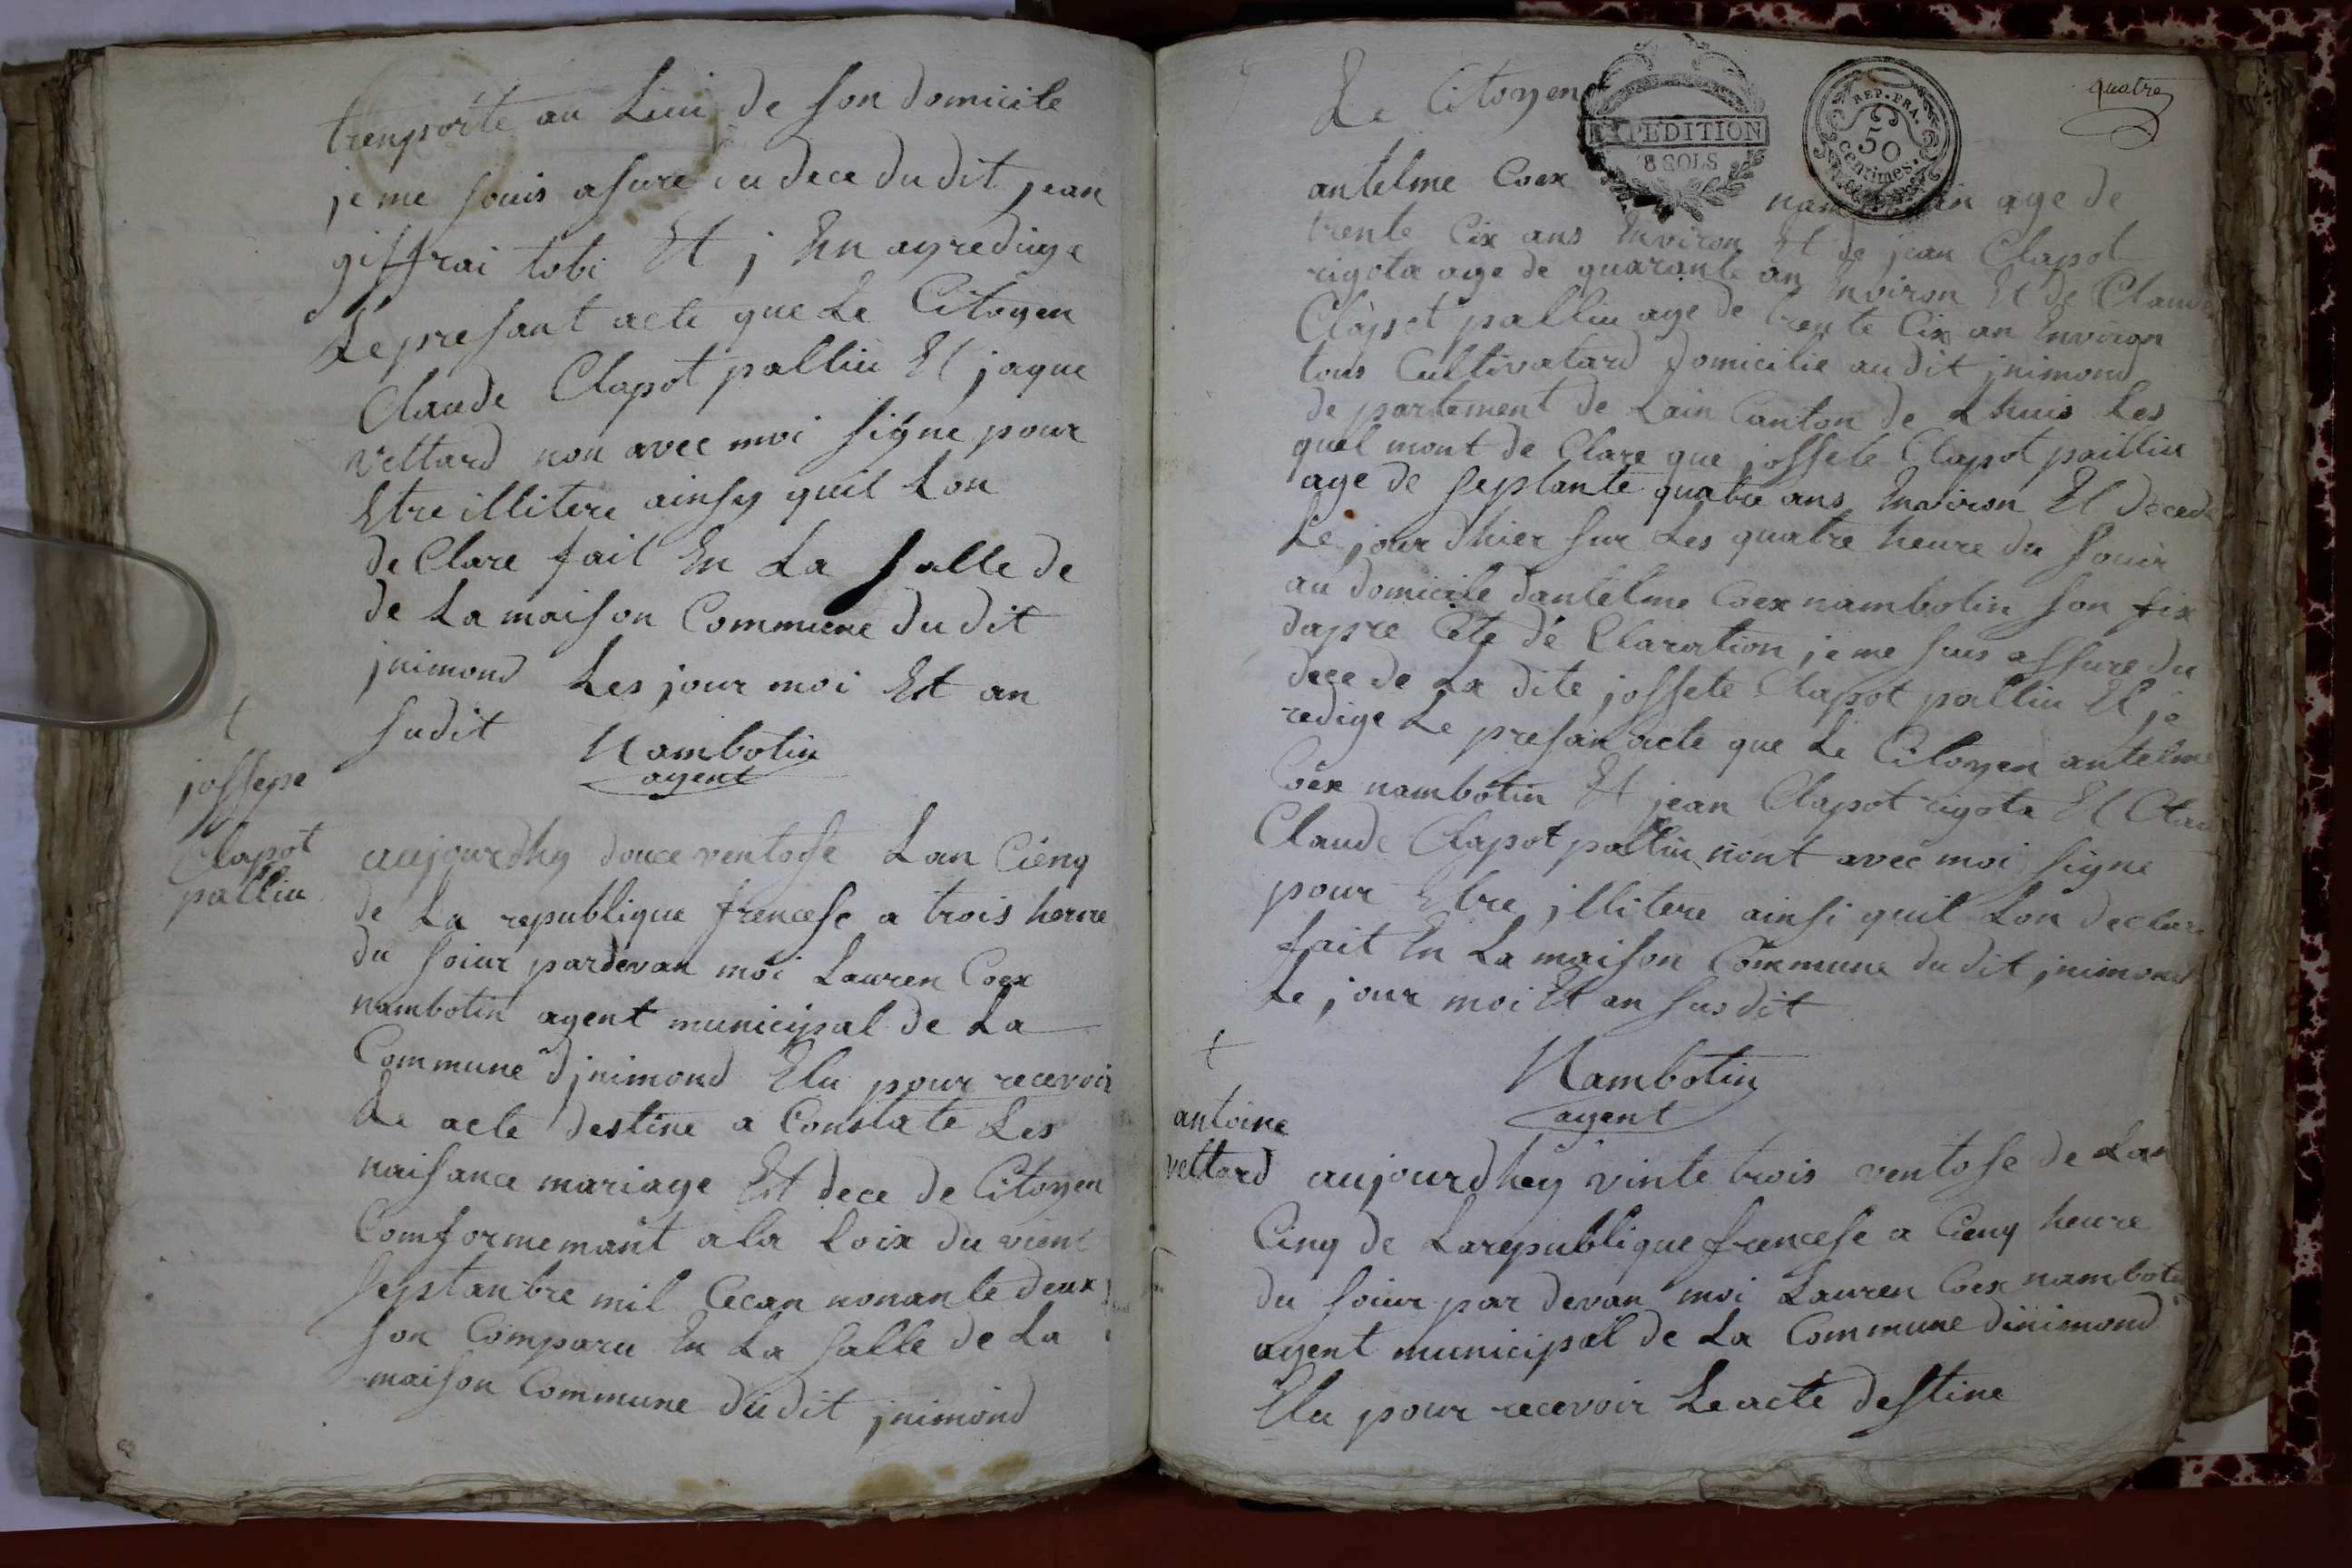 trenporte au Lieu de son domicile
je me souis asure du dece du dit jean
giffrai tobi Et j En ay redige
Le presant acte que Le Citoyen
Claude Clapot palliu Et jaque
vettard non avec moi signe pour
Etre illitere ainsy quil Lon
de Clare fait En La salle de
de La maison Commune du dit
jnimond Les jour moi Et an
sudit
Nambotin
agent
†
jossepe
Clapot
palliu
aujourdhy douce ventosse Lan Cienq
de La republique francese a trois heure
du soiur pardevan moi Lauren Coex
nambotin agent municipal de La
Commune djnimond Elu pour recevoir
Le acte destine a Constate Les
naisance mariage Et dece de Citoyen
Comformemant a la Loix du vient
septanbre mil Cecan nonante deux
son Comparu En La salle de La
maison Commune dudit jnimond
quatre
Le Citoyen
EXPEDITION
8 SOLS
REP. FRA.
50
centimes.
antelme Coex age de
trente Cix ans Environ Et de jean Clapot
rigota age de quarante an Environ Et de Claude
Clapot palliu age de trente Cix an Environ
tous Cultivatard domicilie audit jnimond
de partement de Lain Canton de Lhuis Les
quel mont de Clare que jossete Clapot palliu
age de septante quatre ans Environ Et decede
Le jour dhier sur Les quatre heure du souir
au domicile dantelme Coex nambotin son fix
dapre Cete de Claration je me suis assure du
dece de La dite jossete Clapot palliu Et je
redige Le presan acte que Le Citoyen antelme
Coex nambotin Et jean Clapot rigota Et Clau
Claude Clapot palliu nont avec moi signe
pour Etre jllitere ainsi quil Lon declare
fait En La maison Commune du dit jnimond
Le jour moi Et an susdit
Nambotin
agent
†
antoine
vettard
aujourdhuy vinte trois ventose de Lan
Cinq de La republique francese a Cienq heure
du soiur par devan moi Lauren Coex nambotin
agent municipal de La Commune dinimond
Elu pour recevoir Le acte destine